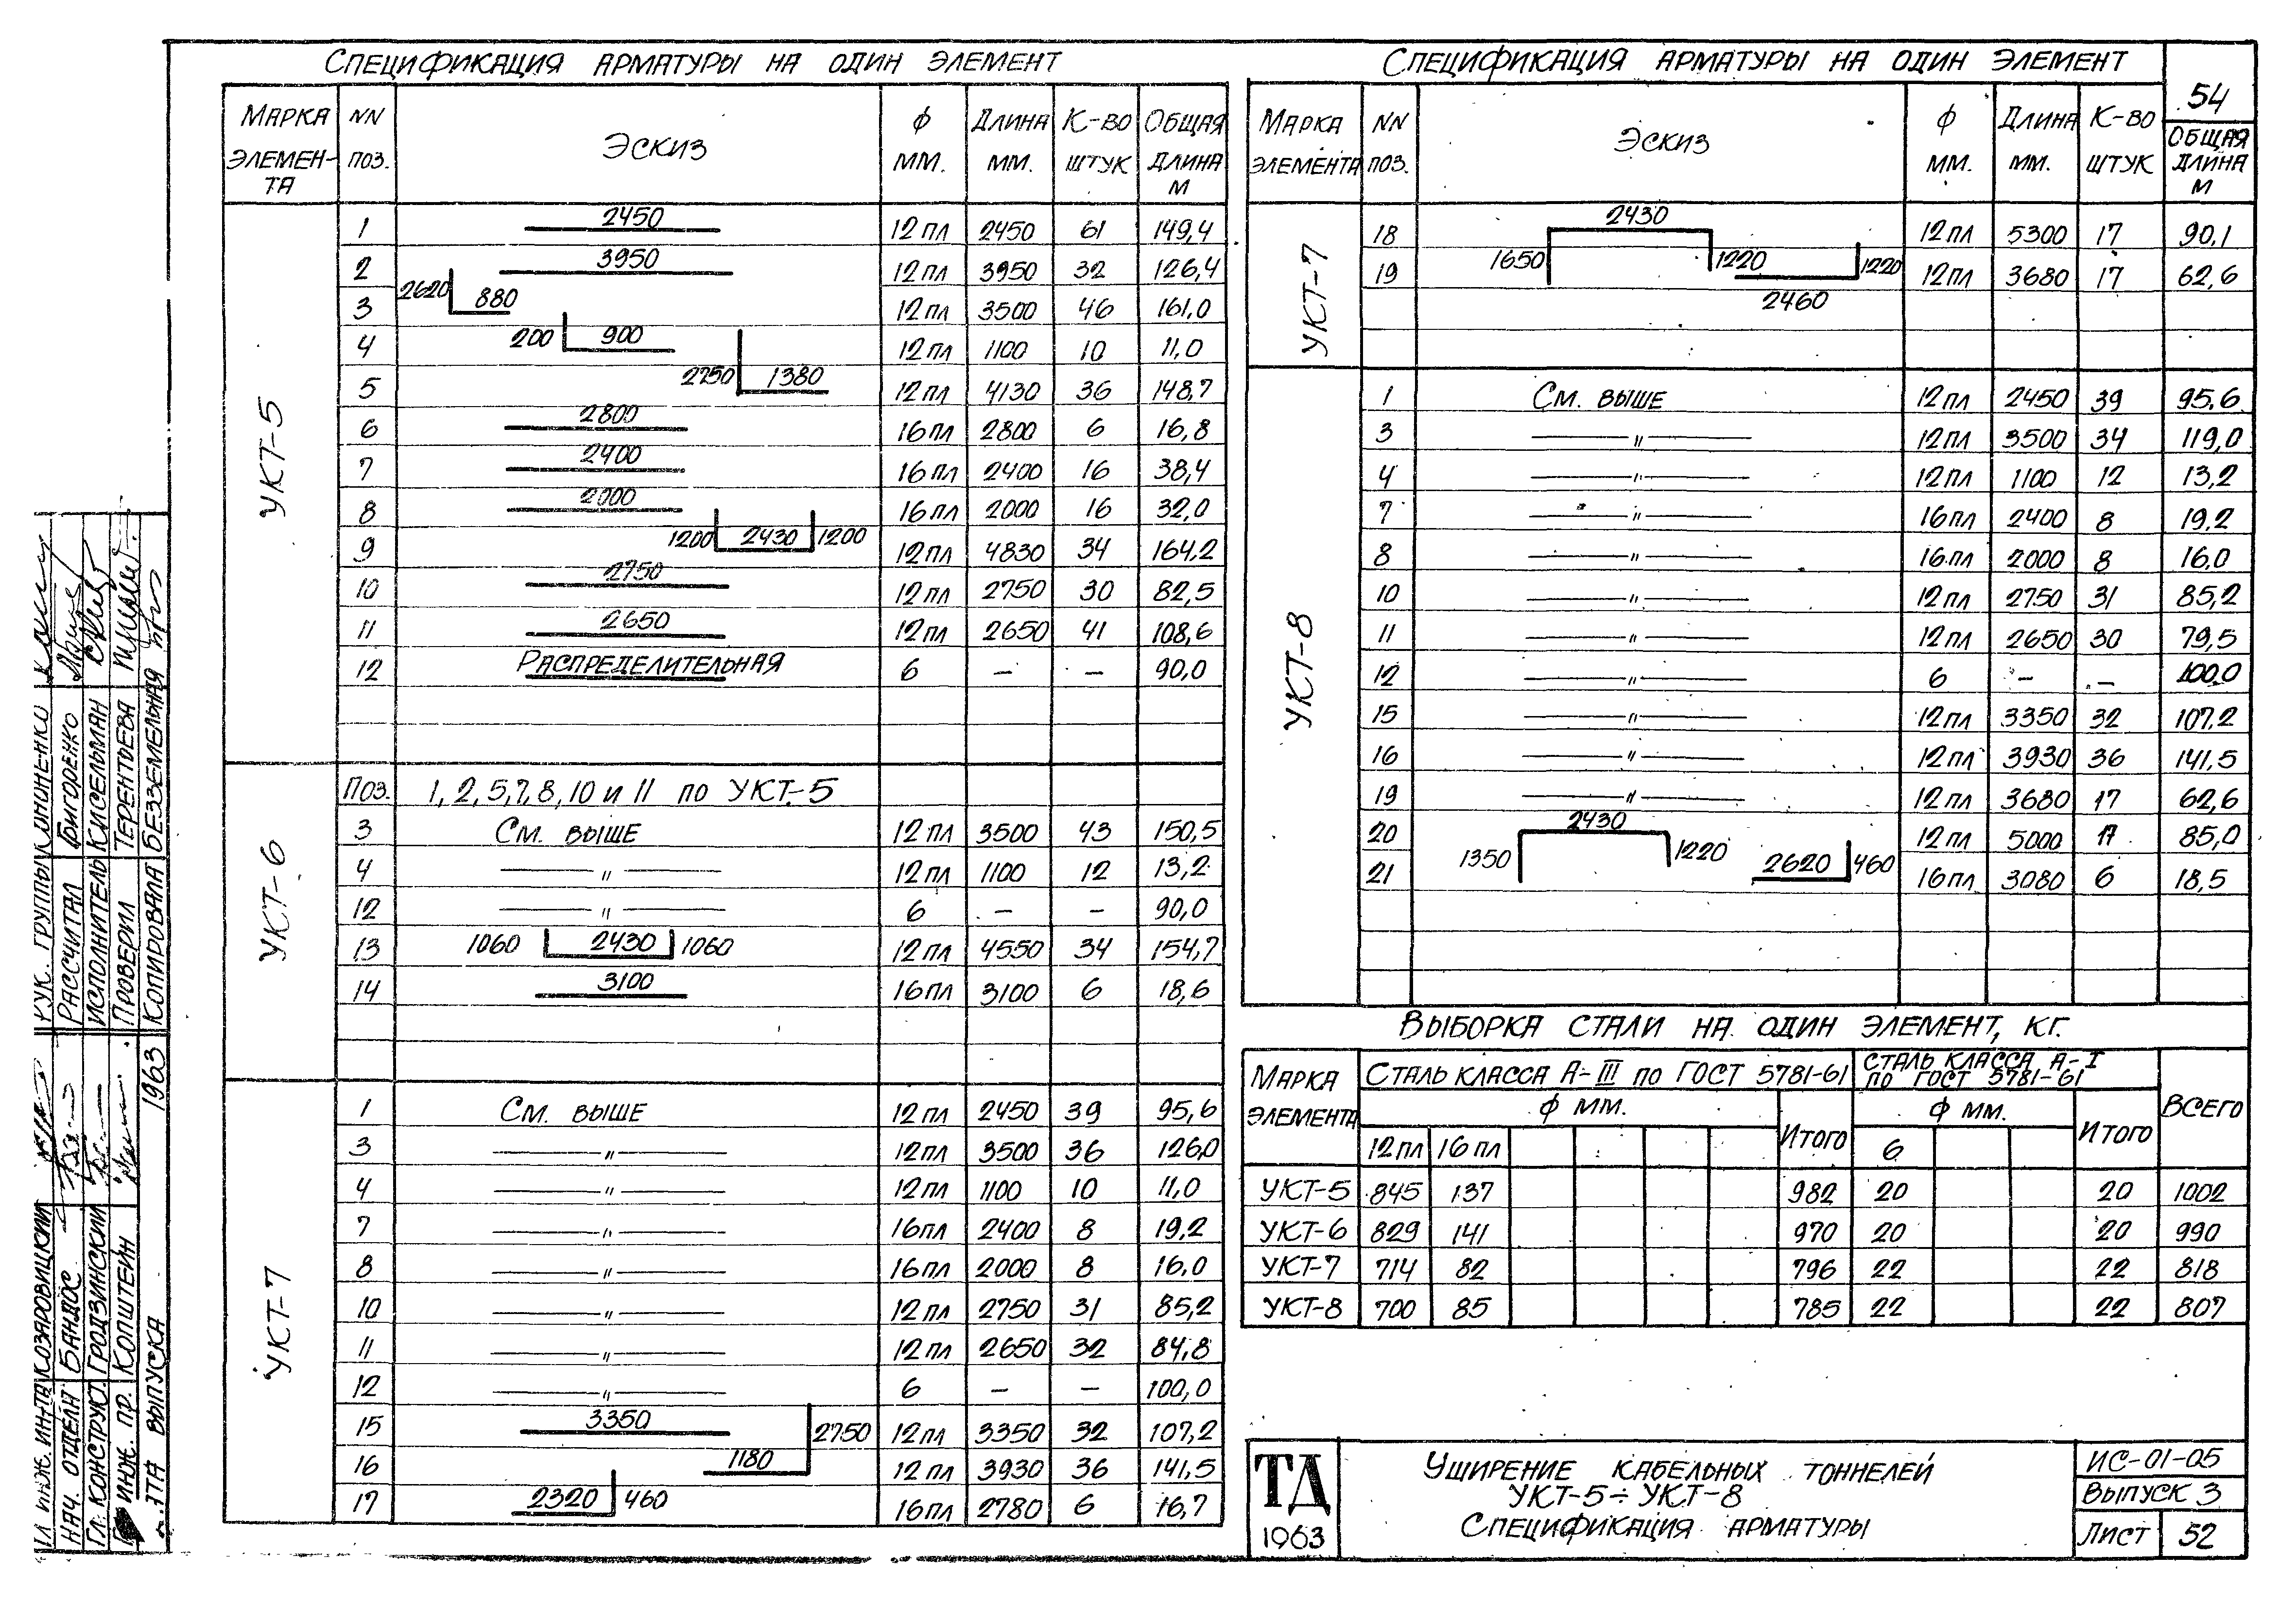 Спецификация арматуры на один элемент
Марка элемен-та | NN поз. | Эскиз | ф мм. | Длина мм. | К-во штук | Общая длина м
УКТ-5
1 | 2450 | 12пл | 2450 | 61 | 149,4
2 | 3950 | 12пл | 3950 | 32 | 126,4
3 | 2620 880 | 12пл | 3500 | 46 | 161,0
4 | 200 900 | 12пл | 1100 | 10 | 11,0
5 | 2750 1380 | 12пл | 4130 | 36 | 148,7
6 | 2800 | 16пл | 2800 | 6 | 16,8
7 | 2400 | 16пл | 2400 | 16 | 38,4
8 | 2000 | 16пл | 2000 | 16 | 32,0
9 | 1200 2430 1200 | 12пл | 4830 | 34 | 164,2
10 | 2750 | 12пл | 2750 | 30 | 82,5
11 | 2650 | 12пл | 2650 | 41 | 108,6
12 | Распределительная | 6 | — | — | 90,0
УКТ-6
Поз. | 1, 2, 5, 7, 8, 10 и 11 по УКТ-5
3 | См. выше | 12пл | 3500 | 43 | 150,5
4 | —〃— | 12пл | 1100 | 12 | 13,2
12 | —〃— | 6 | — | — | 90,0
13 | 1060 2430 1060 | 12пл | 4550 | 34 | 154,7
14 | 3100 | 16пл | 3100 | 6 | 18,6
УКТ-7
1 | См. выше | 12пл | 2450 | 39 | 95,6
3 | —〃— | 12пл | 3500 | 36 | 126,0
4 | —〃— | 12пл | 1100 | 10 | 11,0
7 | —〃— | 16пл | 2400 | 8 | 19,2
8 | —〃— | 16пл | 2000 | 8 | 16,0
10 | —〃— | 12пл | 2750 | 31 | 85,2
11 | —〃— | 12пл | 2650 | 32 | 84,8
12 | —〃— | 6 | — | — | 100,0
15 | 3350 | 12пл | 3350 | 32 | 107,2
16 | 1180 2750 | 12пл | 3930 | 36 | 141,5
17 | 2320 460 | 16пл | 2780 | 6 | 16,7
Спецификация арматуры на один элемент
54
Марка элемента | NN поз. | Эскиз | ф мм. | Длина мм. | К-во штук | Общая длина м
УКТ-7
18 | 1650 2430 1220 | 12пл | 5300 | 17 | 90,1
19 | 2460 1220 | 12пл | 3680 | 17 | 62,6
УКТ-8
1 | См. выше | 12пл | 2450 | 39 | 95,6
3 | —〃— | 12пл | 3500 | 34 | 119,0
4 | —〃— | 12пл | 1100 | 12 | 13,2
7 | —〃— | 16пл | 2400 | 8 | 19,2
8 | —〃— | 16пл | 2000 | 8 | 16,0
10 | —〃— | 12пл | 2750 | 31 | 85,2
11 | —〃— | 12пл | 2650 | 30 | 79,5
12 | —〃— | 6 | — | — | 100,0
15 | —〃— | 12пл | 3350 | 32 | 107,2
16 | —〃— | 12пл | 3930 | 36 | 141,5
19 | —〃— | 12пл | 3680 | 17 | 62,6
20 | 1350 2430 1220 | 12пл | 5000 | 17 | 85,0
21 | 2620 460 | 16пл | 3080 | 6 | 18,5
Выборка стали на один элемент, кг.
Марка элемента | Сталь класса А-III по ГОСТ 5781-61 | Сталь класса А-I по ГОСТ 5781-61 | Всего
ф мм. | Итого | ф мм. | Итого
12пл | 16пл | 6
УКТ-5 | 845 | 137 | 982 | 20 | 20 | 1002
УКТ-6 | 829 | 141 | 970 | 20 | 20 | 990
УКТ-7 | 714 | 82 | 796 | 22 | 22 | 818
УКТ-8 | 700 | 85 | 785 | 22 | 22 | 807
ТД
1963
Уширение кабельных тоннелей
УКТ-5÷УКТ-8
Спецификация арматуры
ИС-01-05
Выпуск 3
Лист 52
Рук. группы
Рассчитал Григоренко
Исполнитель Кисельман
Проверил Терентьева
Копировала Безземельная
Гл. инж. ин-та Козаровицкий
Нач. отдела Бандос
Гл. конструкт. Гродзинский
инж. пр. Копштейн
выпуска 1963